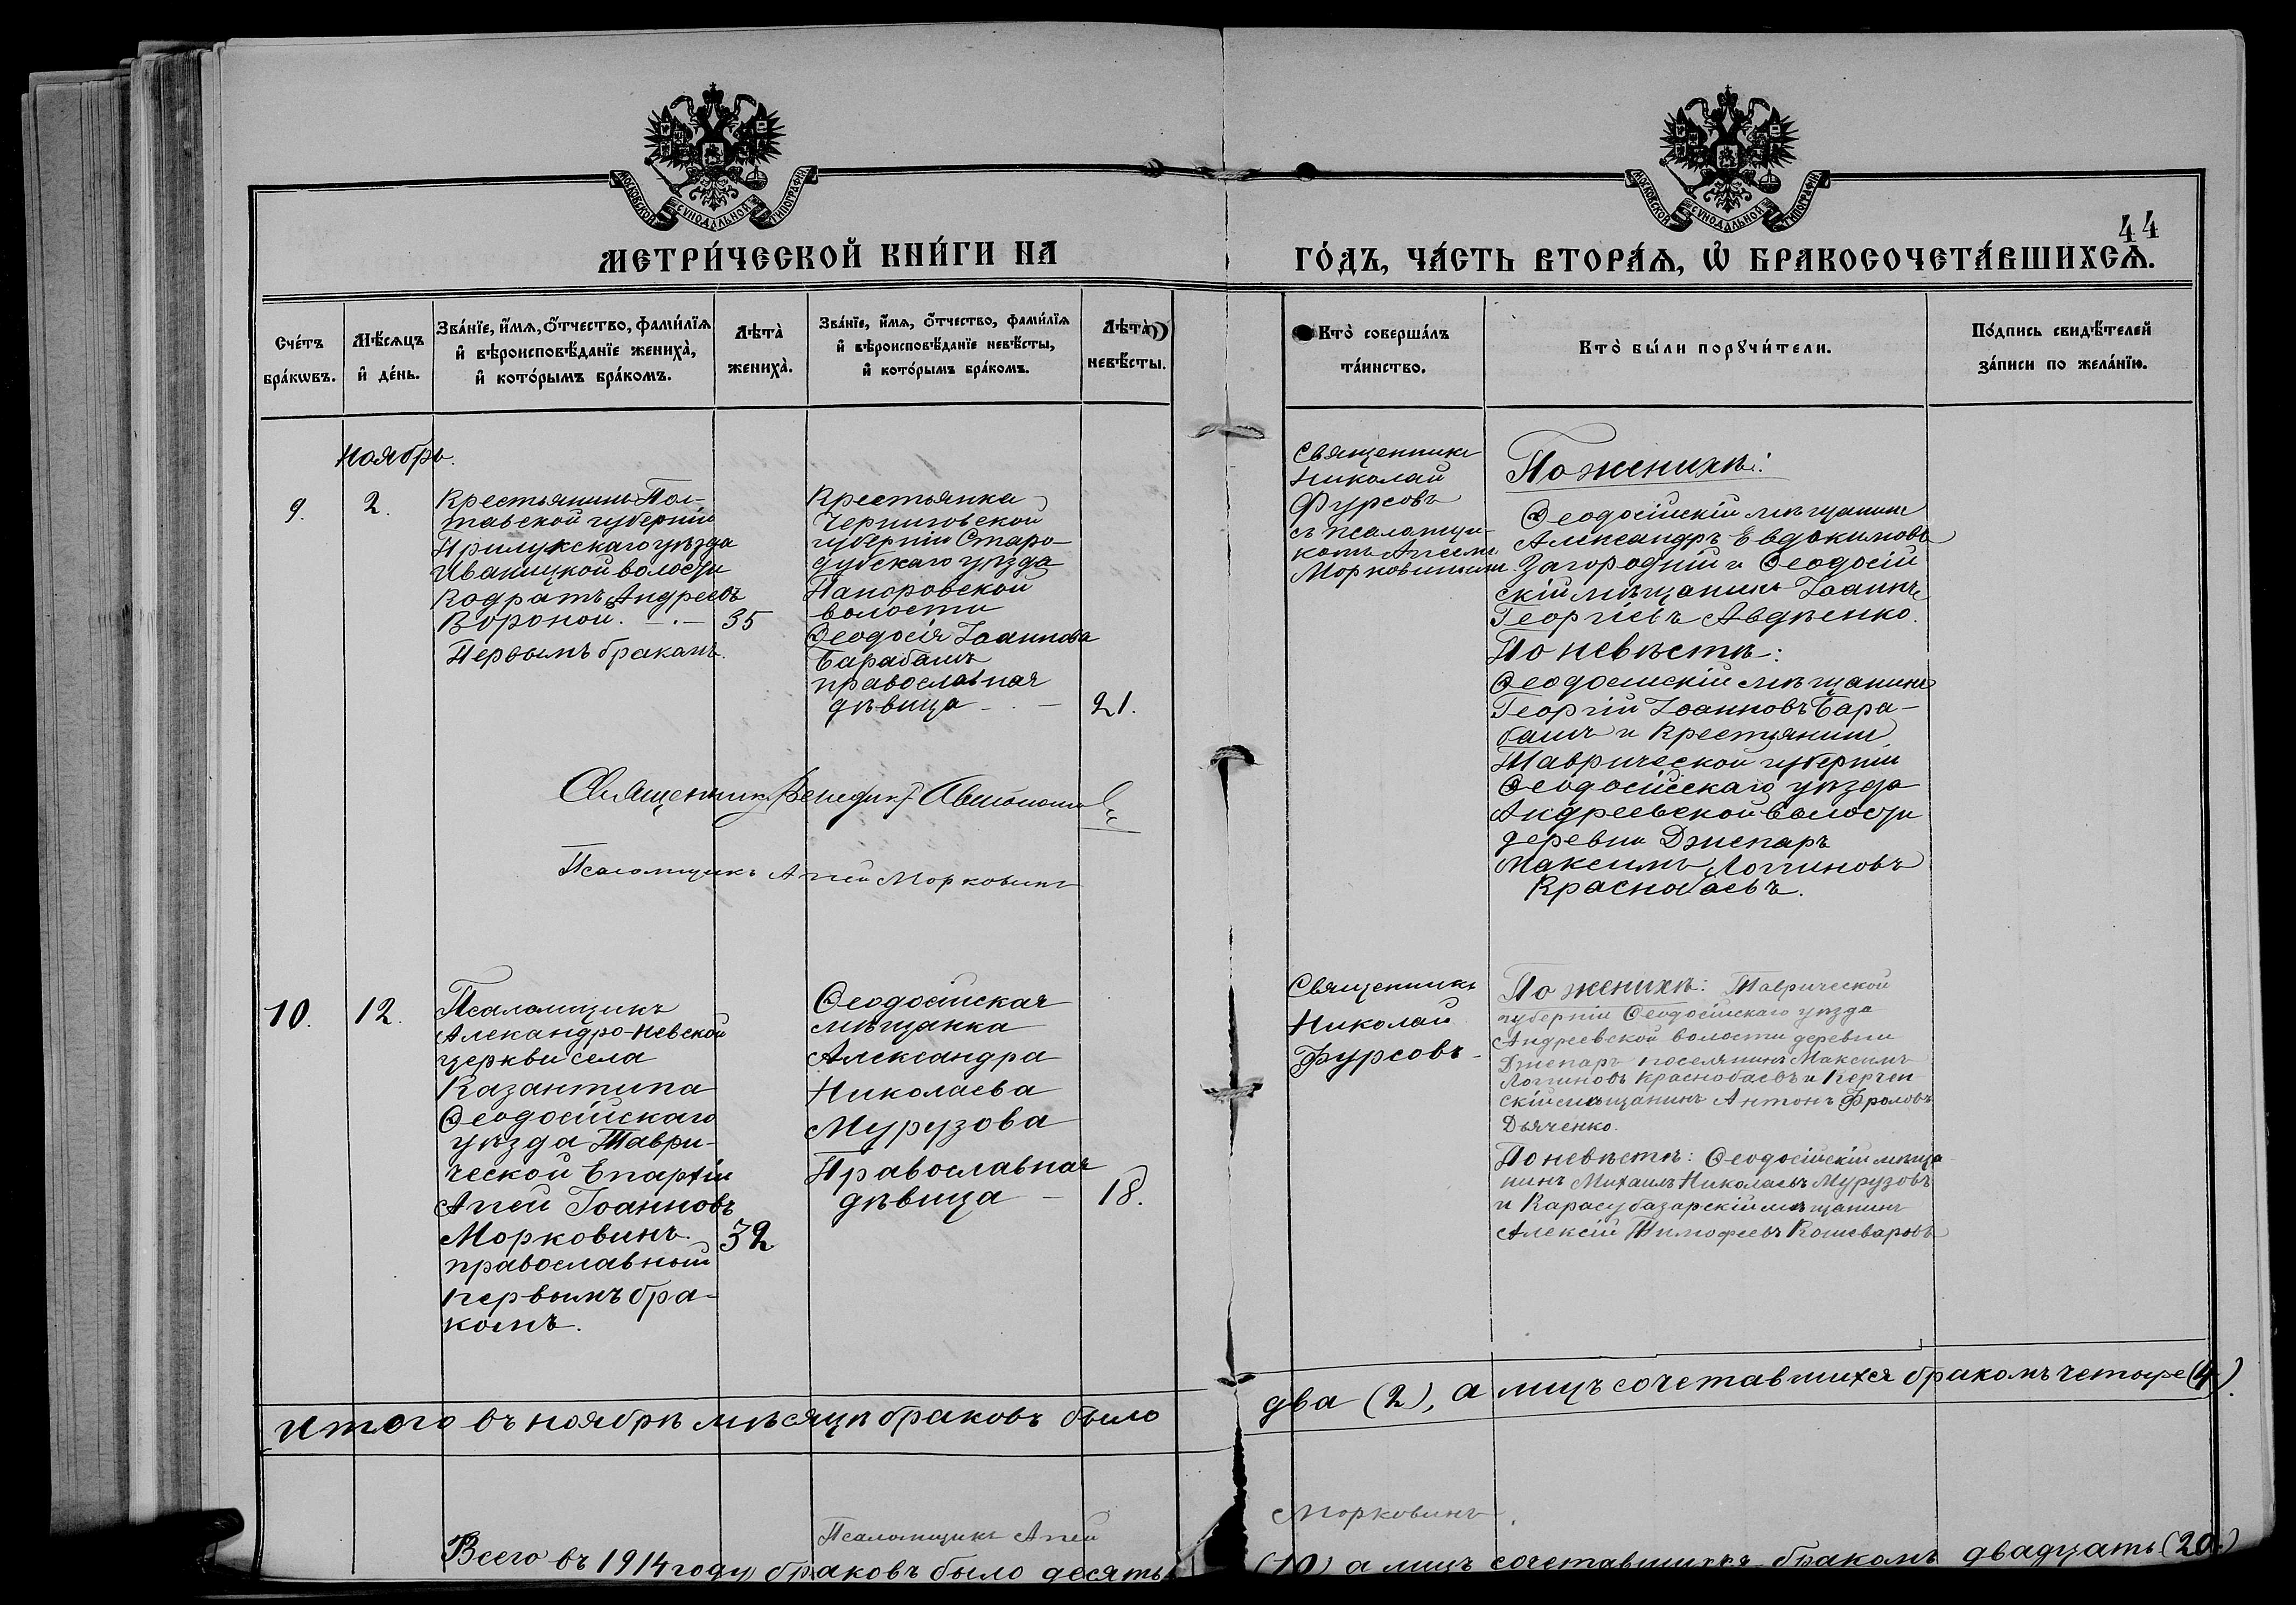 МОСКОВСКОЙ СѴНОДАЛЬНОЙ ТИПОГРАФІИ
МОСКОВСКОЙ СѴНОДАЛЬНОЙ ТИПОГРАФІИ
44
МЕТРИ́ЧЕСКОЙ КНИ́ГИ НА
ГО́ДЪ, ЧА́СТЬ ВТОРА́Ѧ, Ѽ БРАКОСОЧЕТА́ВШИХСѦ.
Сче́тъ
бра́кѡвъ.
Мѣ́сѧцъ
и҆ де́нь.
Зва́нїе, и҆́мѧ, ѻ҆́тчество, фами́лїѧ
и҆ вѣроисповѣ́данїе жениха̀,
и҆ кото́рымъ бра́комъ.
Лѣта̀
жениха̀.
Зва́нїе, и҆́мѧ, ѻ҆́тчество, фами́лїѧ
и҆ вѣроисповѣ́данїе невѣ́сты,
и҆ кото́рымъ бра́комъ.
Лѣта̀
невѣ́сты.
Кто̀ соверша́лъ
та́инство.
Кто̀ бы́ли порꙋчи́тели.
По́дпись свидѣ́телей
за́писи по жела́нїю.
Ноябрь.
9.
2.
Крестьянинъ Пол-
тавской губерніи
Прилукскаго уѣзда
Иваницкой волости
Кодратъ Андреевъ
Вороной. - . -
35
Первымъ бракомъ.
Крестьянка
Черниговской
губерніи Старо-
дубскаго уѣзда
волости
Ѳеодосія Іоаннова
Барабашъ
православная
дѣвица - . -
21.
Священникъ
Николай
Фурсовъ
съ псаломщи-
комъ Аггеемъ
Морковинымъ.
По женихѣ:
Ѳеодосійскій мѣщанинъ
Александръ Евдокимовъ
Загородній и Ѳеодосій
скій мѣщанинъ Іоаннъ
Георгіевъ Авдѣенко.
По невѣстѣ:
Ѳеодосійскій мѣщанинъ
Георгій Іоанновъ Бара-
башъ и крестьянинъ
Таврической губерніи
Ѳеодосійскаго уѣзда
Андреевской волости
деревни Джепаръ
Максимъ Логгиновъ
Краснобаевъ.
Священникъ Венедиктъ
Псаломщикъ Аггей Морковинъ
10.
12.
Псаломщикъ
Алекандро-Невской
церкви села
Казантипа
Ѳеодосійскаго
уѣзда Таври-
ческой Епархіи
Аггей Іоанновъ
Морковинъ.
32
православный
первымъ бра-
комъ.
Ѳеодосійская
мѣщанка
Александра
Николаева
Мурузова
Православная
дѣвица -
18.
Священникъ
Николай
Фурсовъ-
По женихѣ: Таврической
губерніи Ѳеодосійскаго уѣзда
Андреевской волости деревни
Джепаръ поселянинъ Максимъ
Логгиновъ Краснобаевъ и Керчен
скій мѣщанинъ Антонъ Фроловъ
Дьяченко.
По невѣстѣ: Ѳеодосійскій мѣща-
нинъ Михаилъ Николаевъ Мурузовъ
и Карасубазарскій мѣщанинъ
Алексій Тимофеевъ Кошеваровъ
Итого въ ноябрѣ мѣсяцѣ браковъ было
два (2), а лицъ сочетавшихся бракомъ четыре (4).
Псаломщикъ Аггей
Морковинъ.
Всего въ 1914 году браковъ было десять
(10) а лицъ сочетавшихся бракомъ двадцать (20)